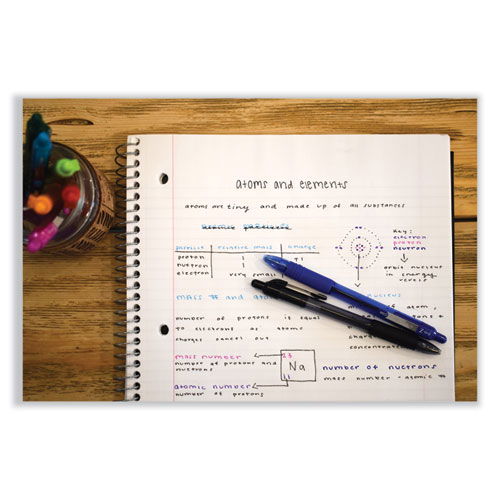 atoms and elements
atoms are tiny and made up of all substances
particle relative mass charge
proton 1 +1
neutron
electron very small
Key:
electron
proton
neutron
orbit nucleus
in energy
mass # and
nucleus
number of protons is equal
to electrons as atomic
charges cancel out
atom,
mass number
number of protons and
neutrons
23
Na
11
atomic number
number of protons
number of neutrons
mass number - atomic #